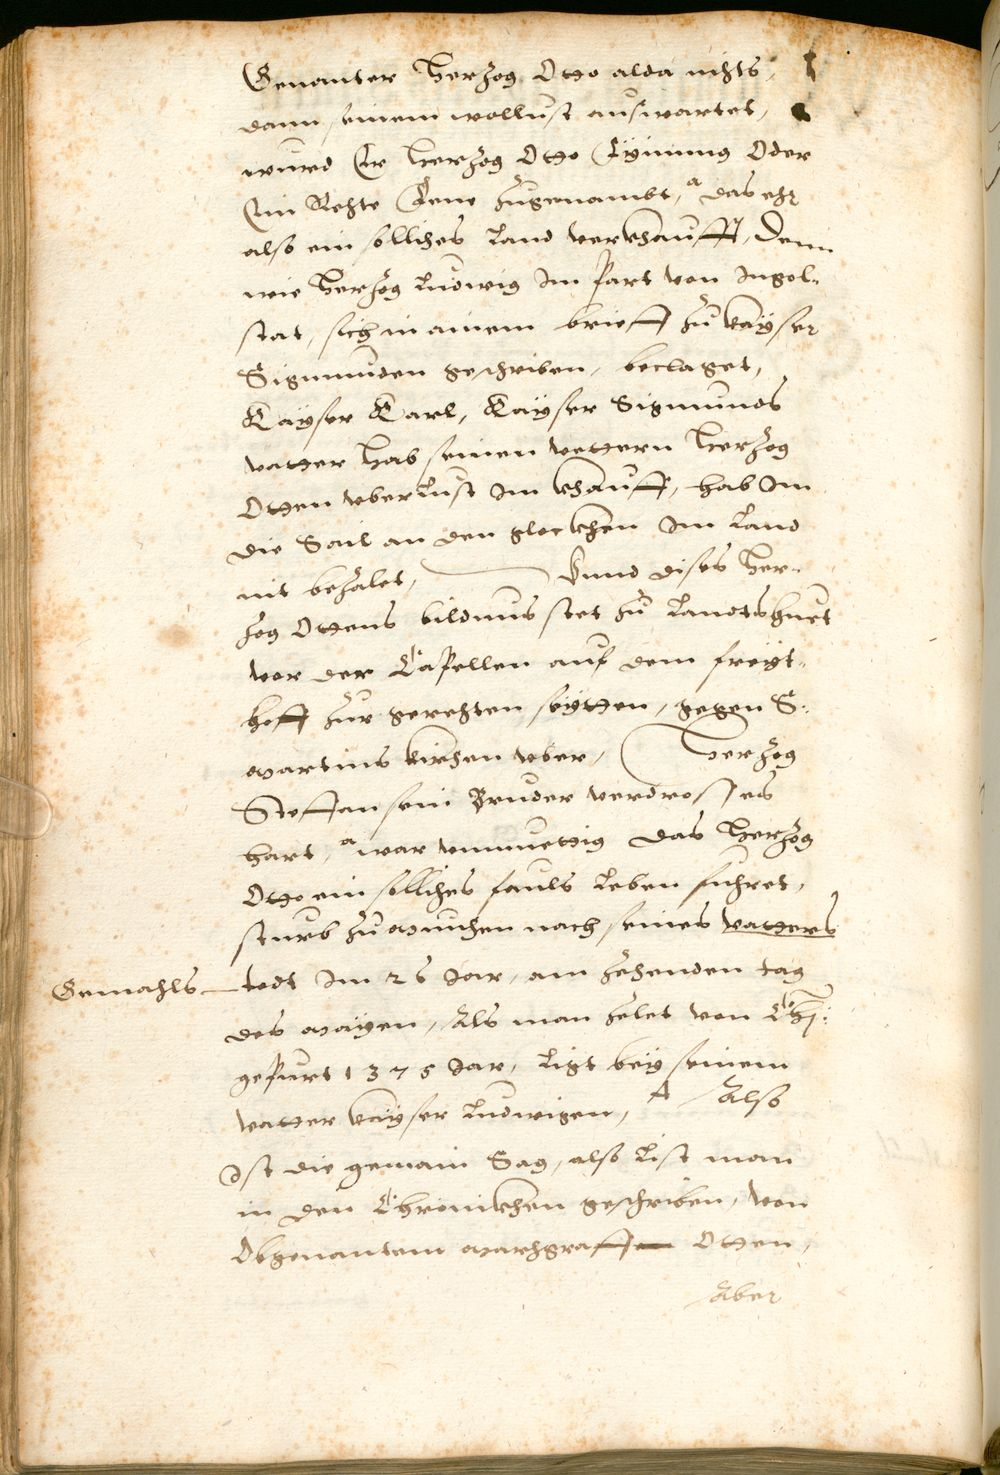 Genanter Herzog Otto alda nichts,
dann seinem wollust auswartet,
wurd Er Herzog Otto Oder
Ein Rechte zugenambt, das ehr
also ein solliches Land verkhaufft, Denn
wie Herzog Ludwig Im Part von Ingol-
stat, sich in ainem brieff zu Kayser
Sigmunden geschriben, beclaget,
Kayser Karl, Kayser Sigmunds
vatter hab seinen vettern Herzog
Otten uberlist im khauff, hab Im
die Sail an den glockhen Im Land
nit bezalet, Vnnd dises Her-
zog Ottens bildnus stet zu Landtshuet
vor der Capellen auf dem freyt-
hoff zur gerechten seytten, gegen S:
Martins kirchen vber, Herzog
Steffan sein Bruder verdross es
hart, war vnmuettig das Herzog
Otto ein solliches fauls Leben fuhret,
sturb zu Munchen nach seines vatters
Gemahls todt Im 28 Jar, am zehenden tag
des Mayen, Als man zelet von Chri:
gepurt 1375 Jar, ligt bey seinem
vatter Kayser Ludwigen, A Also
Ist die gemain Sag, also List man
in den Chronickhen geschriben, von
Obgenantem Marchgraffen Otten,
Aber